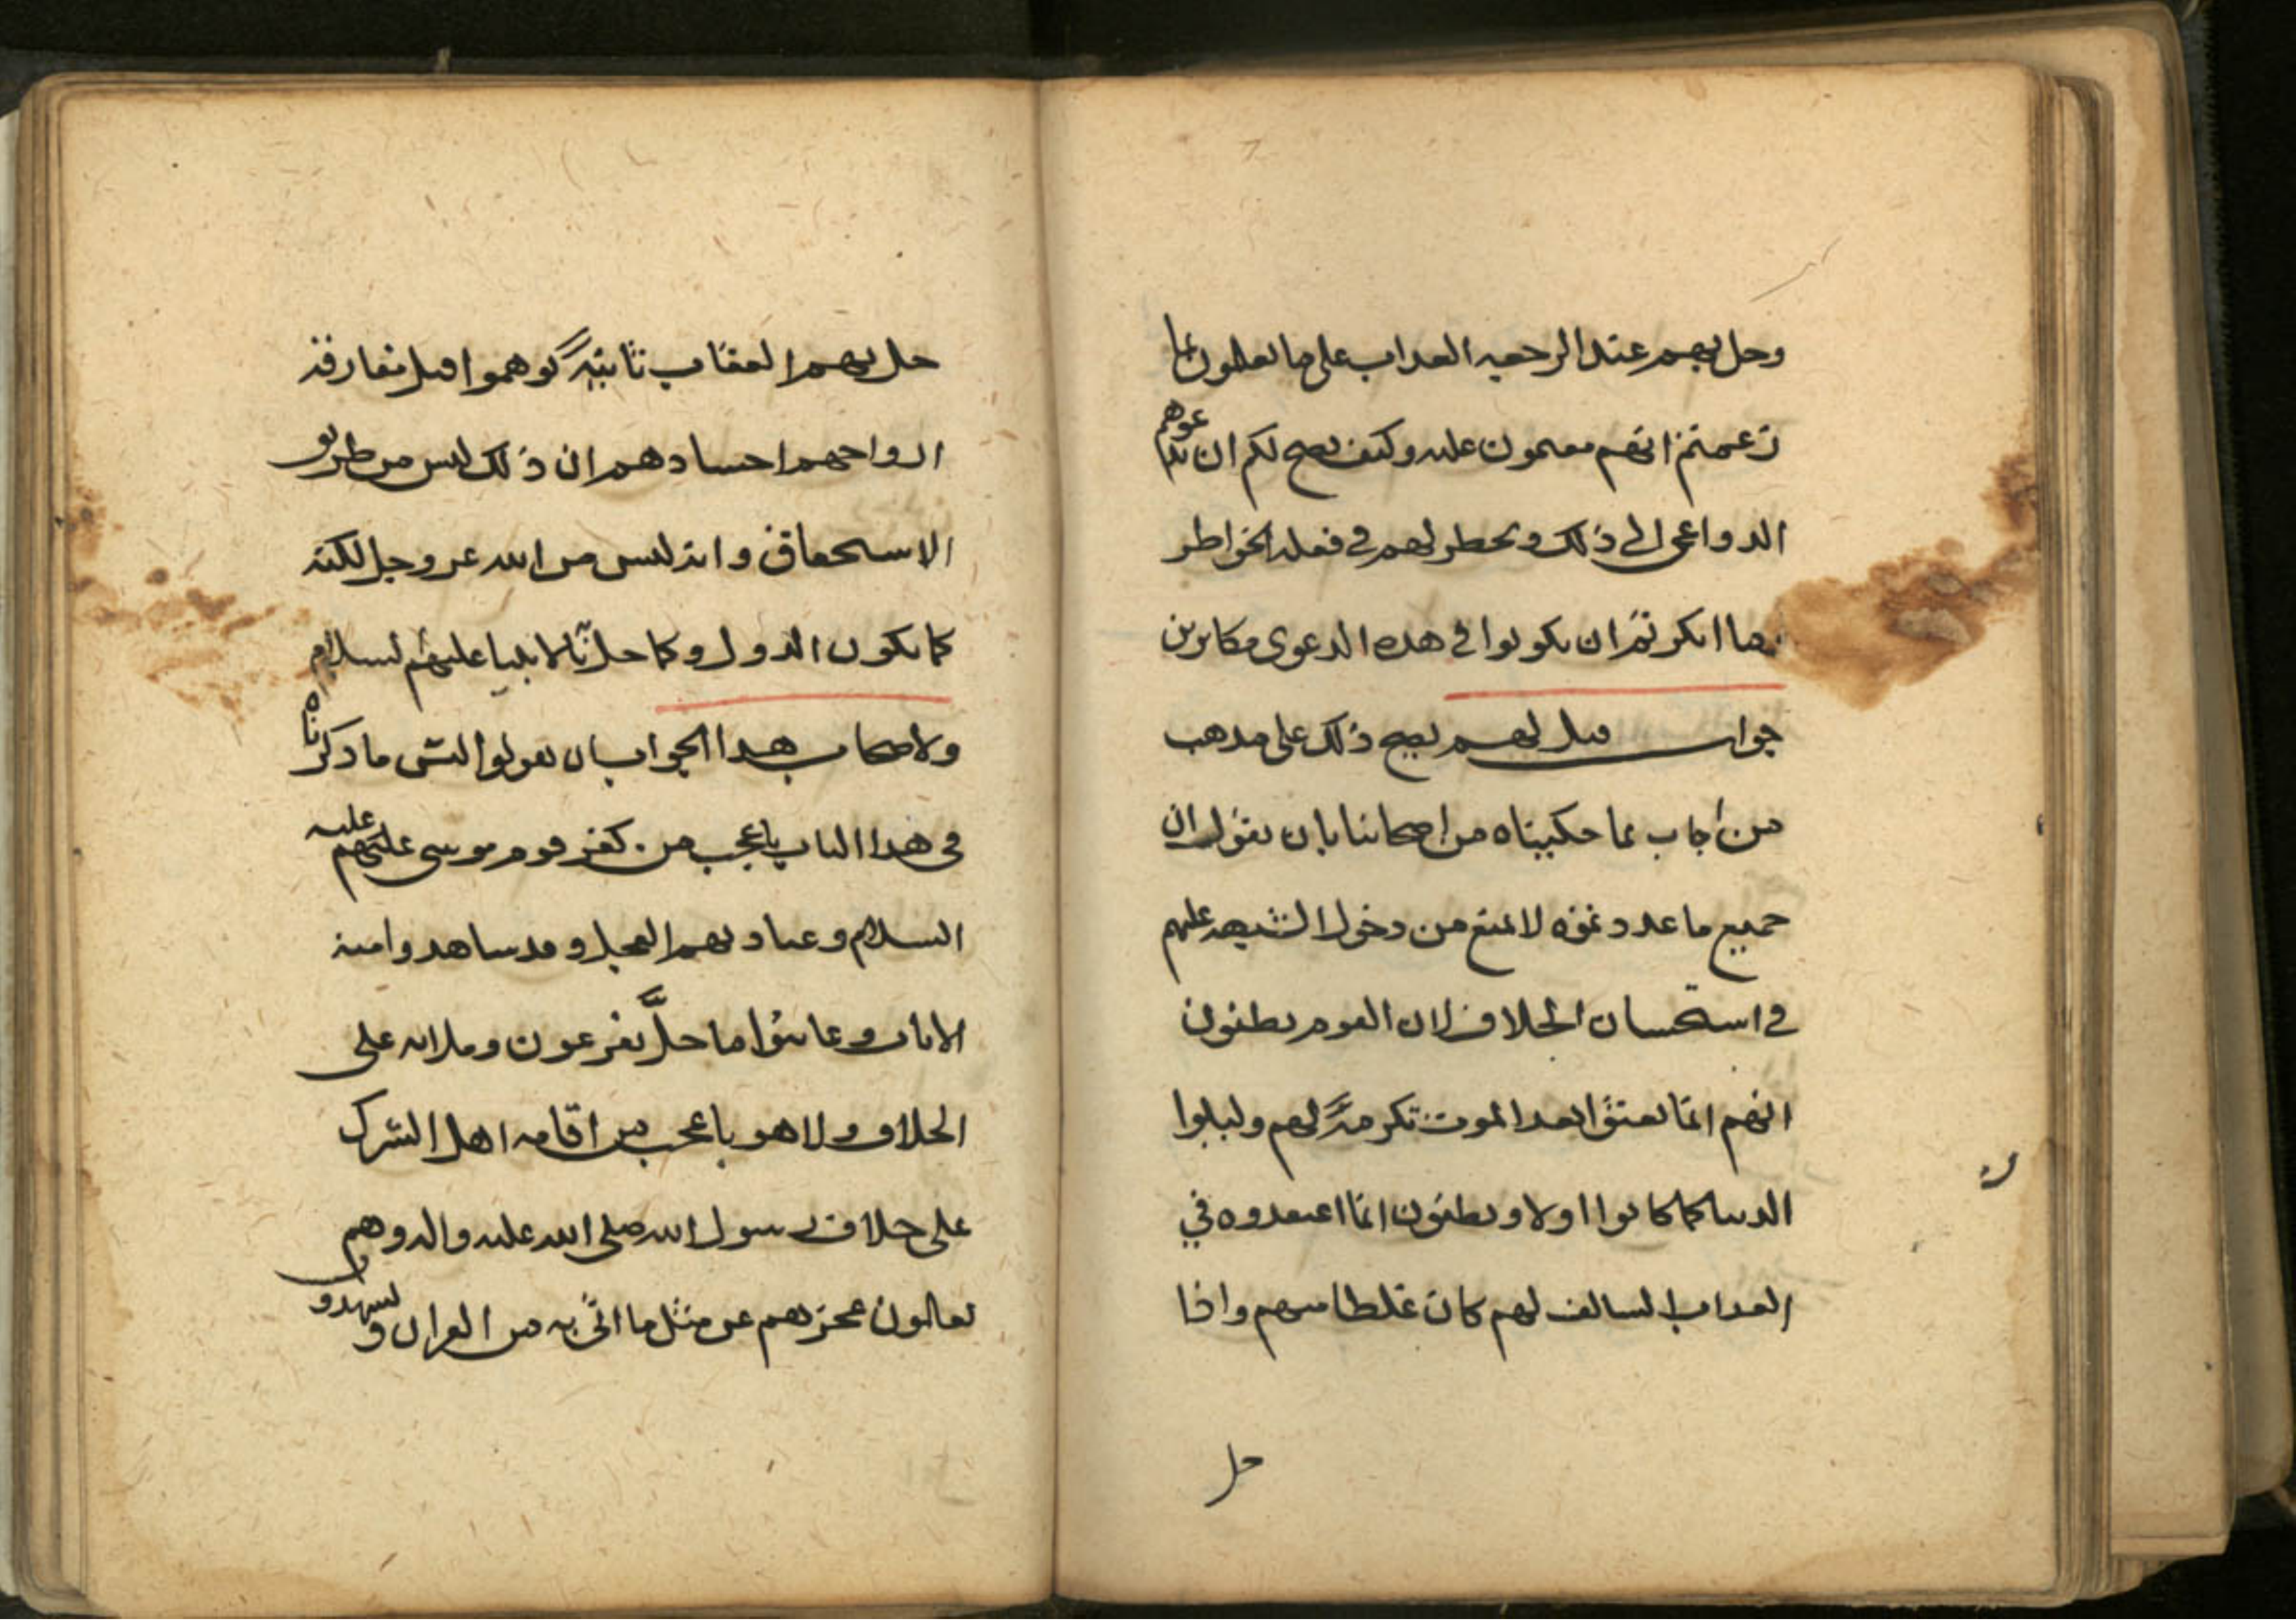 وحل بهم عند الرجعة العذاب على ما يعملون بما
زعمتم انهم مقيمون عليه وكيف يصح لكم ان تدعوهم
الدواعي الى ذلك ويخطر لهم في فعله الخواطر
ما انكرتم ان تكونوا في هذه الدعوى مكابرين
جواب قيل لهم يصح ذلك على مذهب
من اجاب بما حكيناه من اصحابنا بان نقول ان
جميع ما عددتموه لا يمنع من دخول الشبهة عليهم
في استحسان الخلاف لان القوم يظنون
انهم انما بعثوا بعد الموت تكرمةً لهم وليلوا
الدنيا كما كانوا اولا ويظنون انما اعتقدوه في
العذاب السالف لهم كان غلطا منهم واذا
حل
حل بهم العقاب ثانيةً توهموا قبل مفارقة
ارواحهم اجسادهم ان ذلك ليس من طريق
الاستحقاق وانه ليس من الله عز وجل لكنه
كما يكون الدول وكما حل بالانبيا عليهم السلام
ولاصحاب هذا الجواب ان يقولوا ليس ما ذكرناه
في هذا الباب باعجب من كفر قوم موسى عليه
السلام وعبادتهم العجل وقد شاهدوا منه
الايات وعاينوا ما حلَّ بفرعون وملائه على
الخلاف ولا هو باعجب من اقامة اهل الشرك
على خلاف رسول الله صلى الله عليه واله وهم
يعلمون عجزهم عن مثل ما اتى به من القران ويشهدون